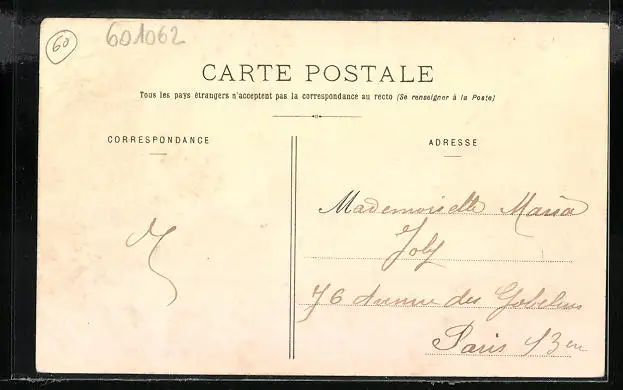 60
601062
CARTE POSTALE
Tous les pays étrangers n'acceptent pas la correspondance au recto (Se renseigner à la Poste)
CORRESPONDANCE
ADRESSE
Mademoiselle Maria
Joly
76 Avenue des Gobelins
Paris 13en